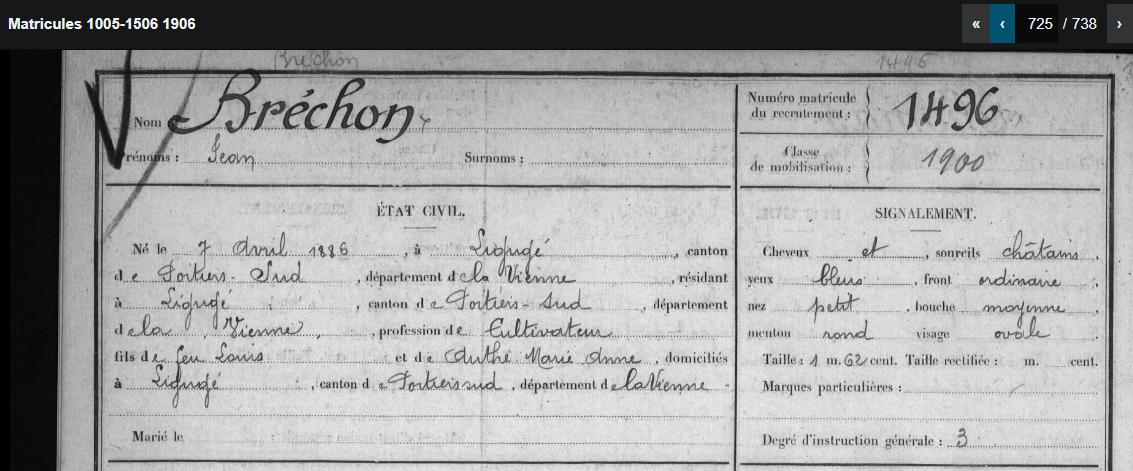 Matricules 1005-1506 1906
« ‹ 725 / 738 ›
Bréchon 1496
Nom Bréchon
Prénoms : Jean Surnoms :
Numéro matricule du recrutement : 1496
Classe de mobilisation : 1900
ÉTAT CIVIL.
Né le 7 Avril 1886, à Ligugé, canton
de Poitiers-Sud, département de la Vienne, résidant
à Ligugé, canton de Poitiers-Sud, département
de la Vienne, profession de Cultivateur
fils de feu Louis et de Authé Marie Anne, domiciliés
à Ligugé, canton de Poitiers sud, département de la Vienne -
Marié le
SIGNALEMENT.
Cheveux et, sourcils châtains,
yeux bleus, front ordinaire,
nez petit, bouche moyenne
menton rond visage ovale
Taille : 1 m. 62 cent. Taille rectifiée : m. cent.
Marques particulières :
Degré d'instruction générale : 3